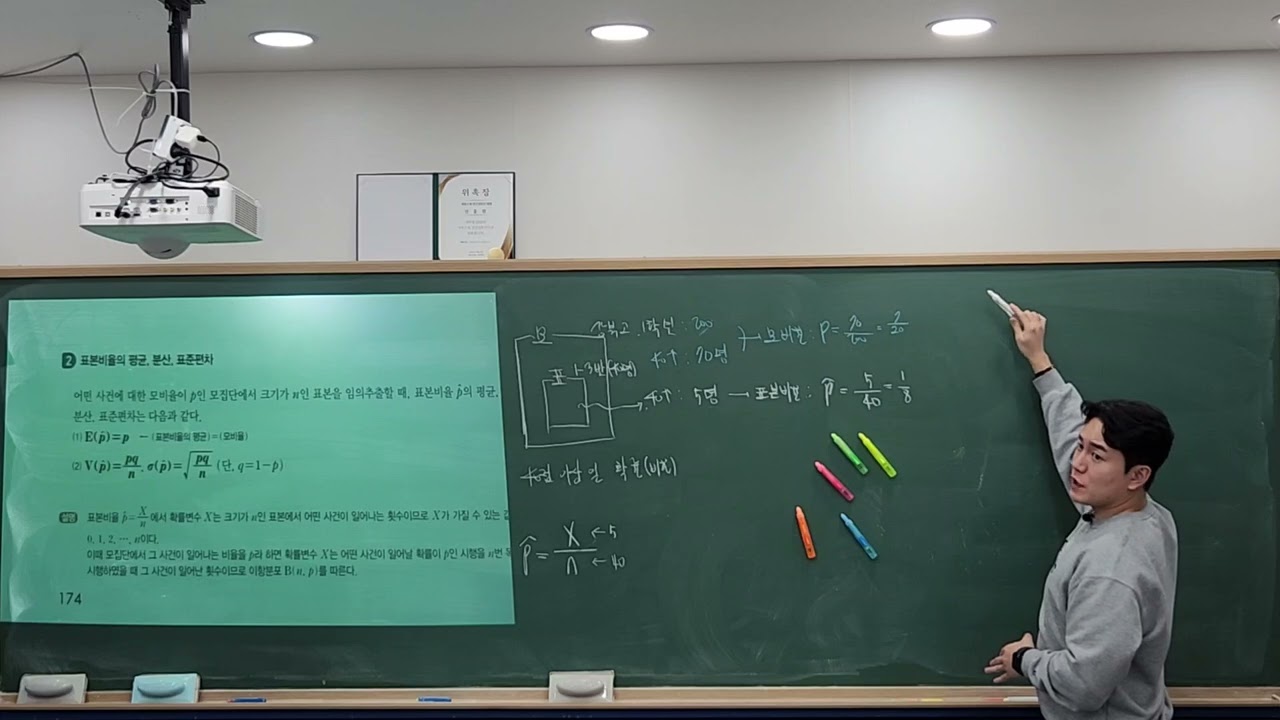 위촉장
2 표본비율의 평균, 분산, 표준편차
어떤 사건에 대한 모비율이 p인 모집단에서 크기가 n인 표본을 임의추출할 때, 표본비율 p̂의 평균,
분산, 표준편차는 다음과 같다.
(1) E(p̂)=p ← (표본비율의 평균)=(모비율)
(2) V(p̂)=pq/n, σ(p̂)=√(pq/n) (단, q=1-p)
설명 표본비율 p̂=X/n에서 확률변수 X는 크기가 n인 표본에서 어떤 사건이 일어나는 횟수이므로 X가 가질 수 있는 값
0, 1, 2, ⋯, n이다.
이때 모집단에서 그 사건이 일어나는 비율을 p라 하면 확률변수 X는 어떤 사건이 일어날 확률이 p인 시행을 n번
시행하였을 때 그 사건이 일어난 횟수이므로 이항분포 B(n, p)를 따른다.
174
모 고 1학년 : 200
40↑ : 70명 → 모비율 : P = 70/200 = 7/20
표 1-3반(40명)
40↑ : 5명 → 표본비율 : p̂ = 5/40 = 1/8
확률(비율)
p̂ = X/n ←5 ←40